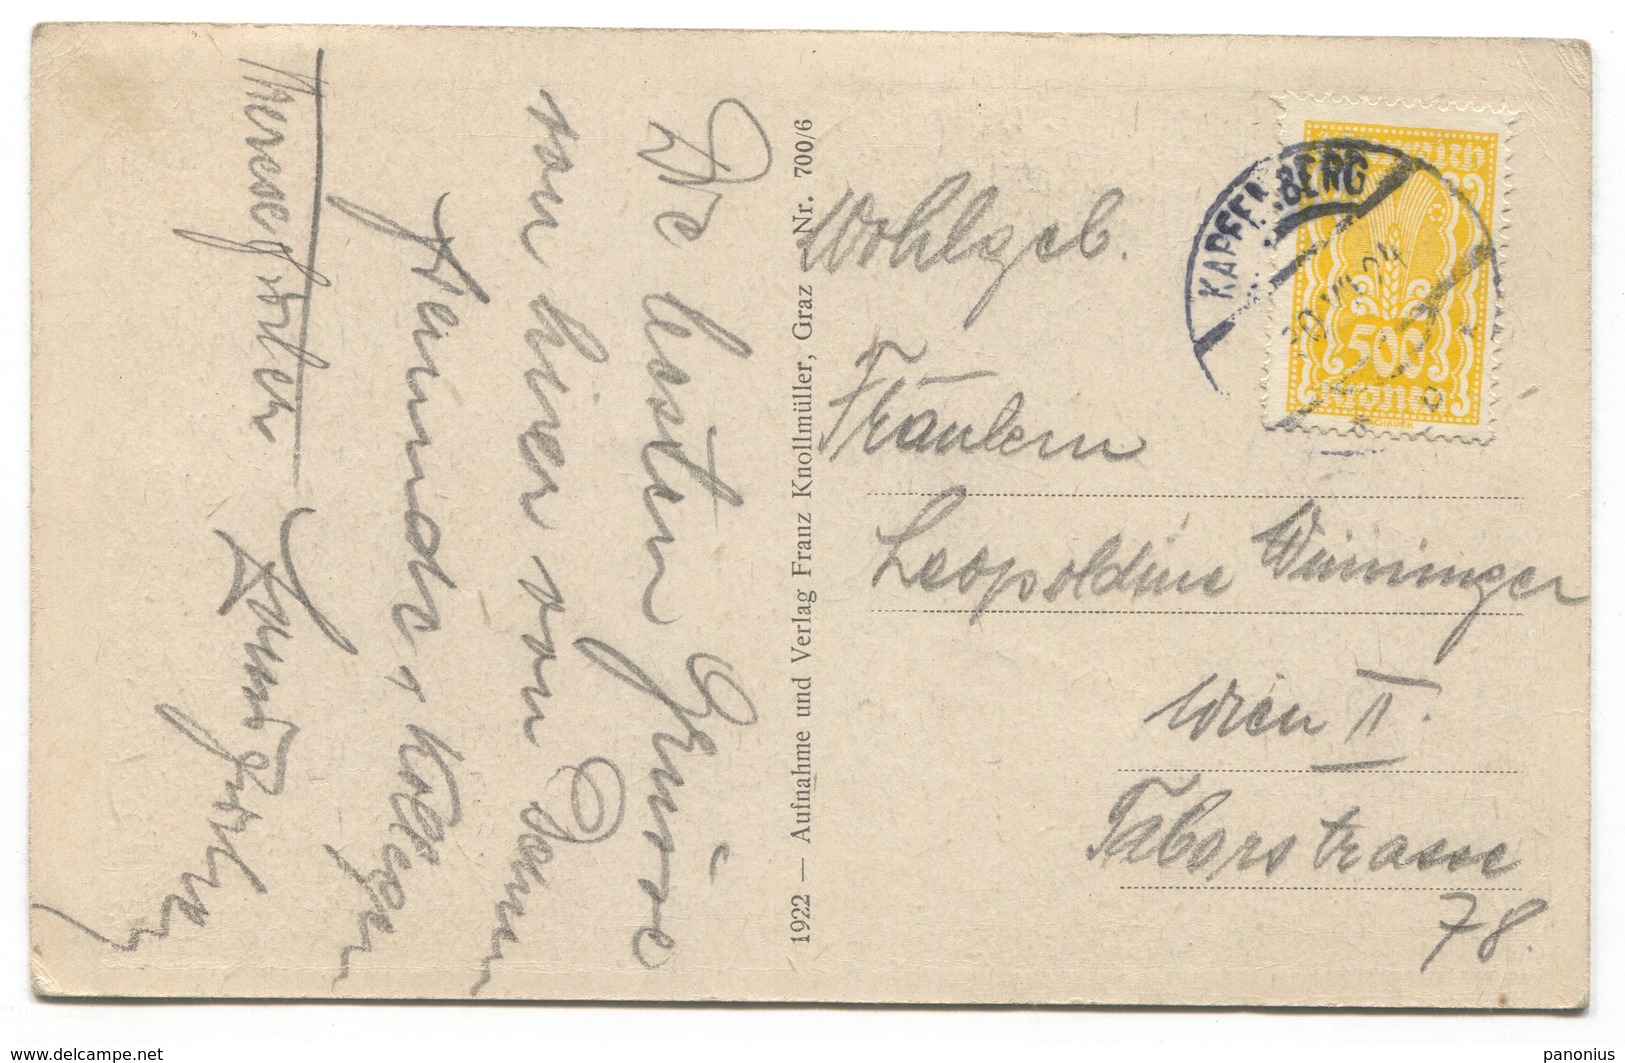 Die besten Grüsse
von hier von Deinem
Freunde u. Kollegen
1922 — Aufnahme und Verlag Franz Knollmüller, Graz Nr. 700/6
KAPFENBERG
500
Kronen
Wohlgeb.
Fräulein
Leopoldine Wimminger
Wien II.
Taborstrasse
78.
www.delcampe.net
panonius